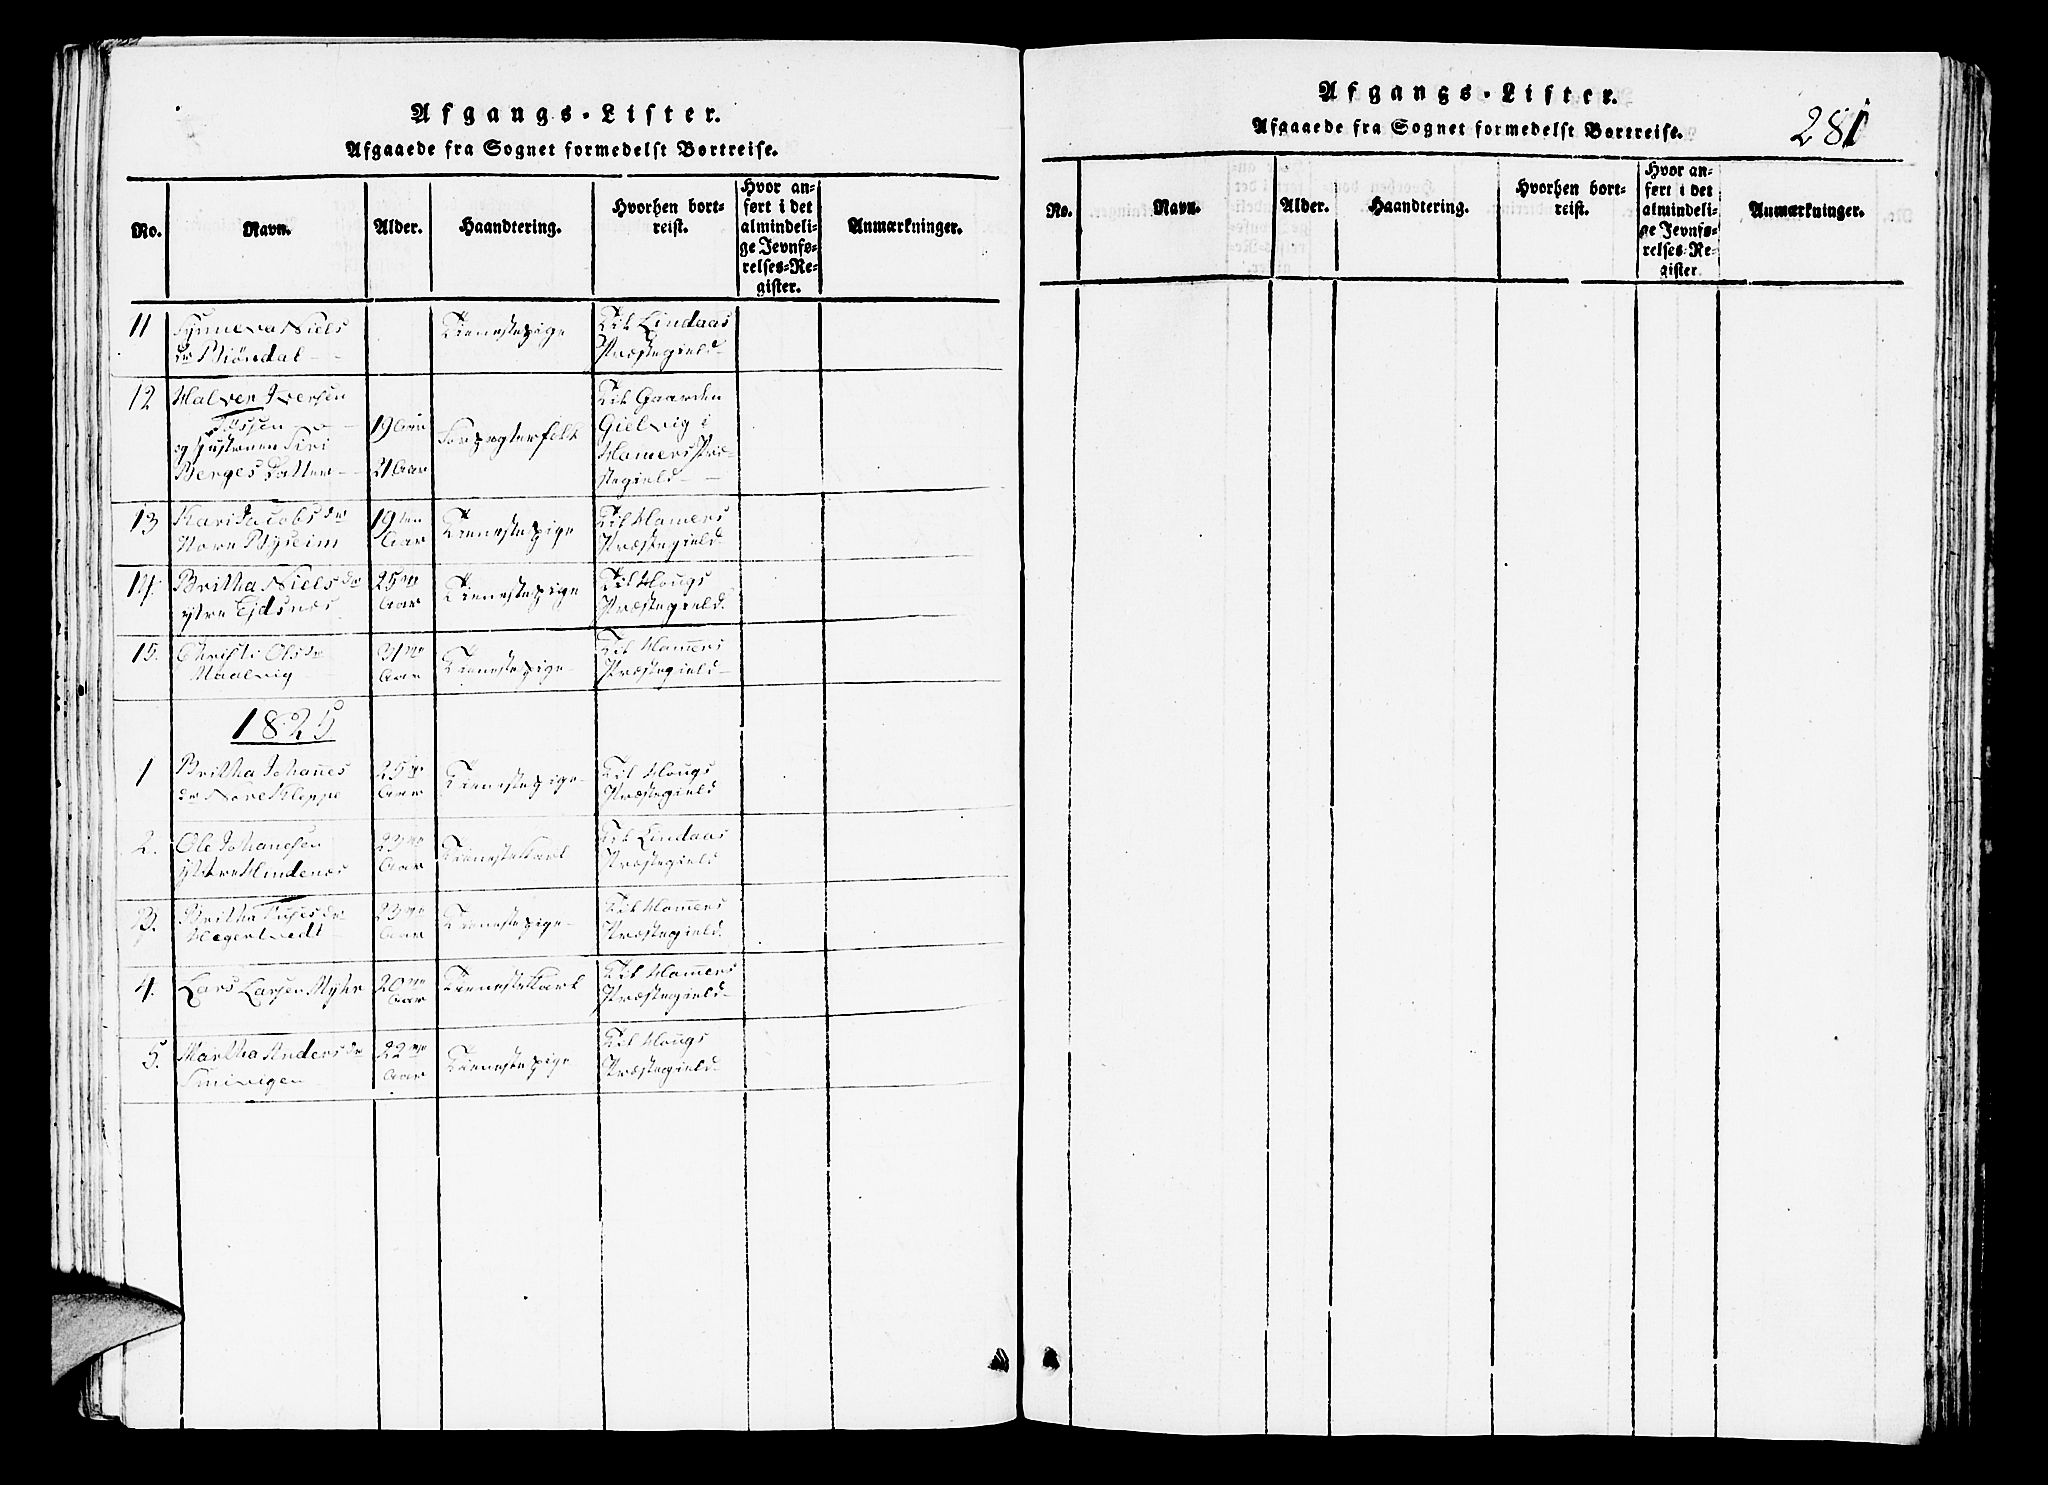 Afgangs-Lister.
Afgaaede fra Sognet formedelst Bortreise.
No.
Navn.
Alder.
Haandtering.
Hvorhen bort-
reist.
Hvor an-
ført i det
almindeli-
ge Jevnfø-
relses-Re-
gister.
Anmærkninger.
11
Synneva Niels
dr Biöndal
Tienestepige
Til Lindaas
Præstegield
12
Halver Iversen
og Hustruen Siri
Berges Datter
19 Aar
21 Aar
Til Gaarden
Gielvig i
Hamers Præ-
stegield
13
Kari Jacobs dr
Nore Byseim
19 ten
Aar
Tienestepige
Til Hamers
Præstegield
14.
Britha Niels dr
ytre Eidsnes
25 me
Aar
Tienestepige
Til Hougs
Præstegield.
15.
Christi Ols dr
31 me
Aar
Tienestepige
Til Hamers
Præstegield
1825
1
Britha Johannes
dr Nore Kleppe
25 me
Aar
Tienestepige
Til Hougs
Præstegield
2.
Ole Johannesen
ytre Hindenes
23 me
Aar
Tienestekarl
Til Lindaas
Præstegield
3.
Britha
Hegertvedt
23 me
Aar
Tienestepige
Til Hamers
Præstegield.
4.
Lars Larsen Myhr
20 me
Aar
Tienestekarl
Til Hamers
Præstegield
5.
Martha Anders dr
22 me
Aar
Tienestepige
Til Hougs
Præstegield
Afgangs-Lister.
281
Afgaaede fra Sognet formedelst Bortreise.
No.
Navn.
Alder.
Haandtering.
Hvorhen bort-
reist.
Hvor an-
ført i det
almindeli-
ge Jevnfø-
relses-Re-
gister
Anmærkninger.